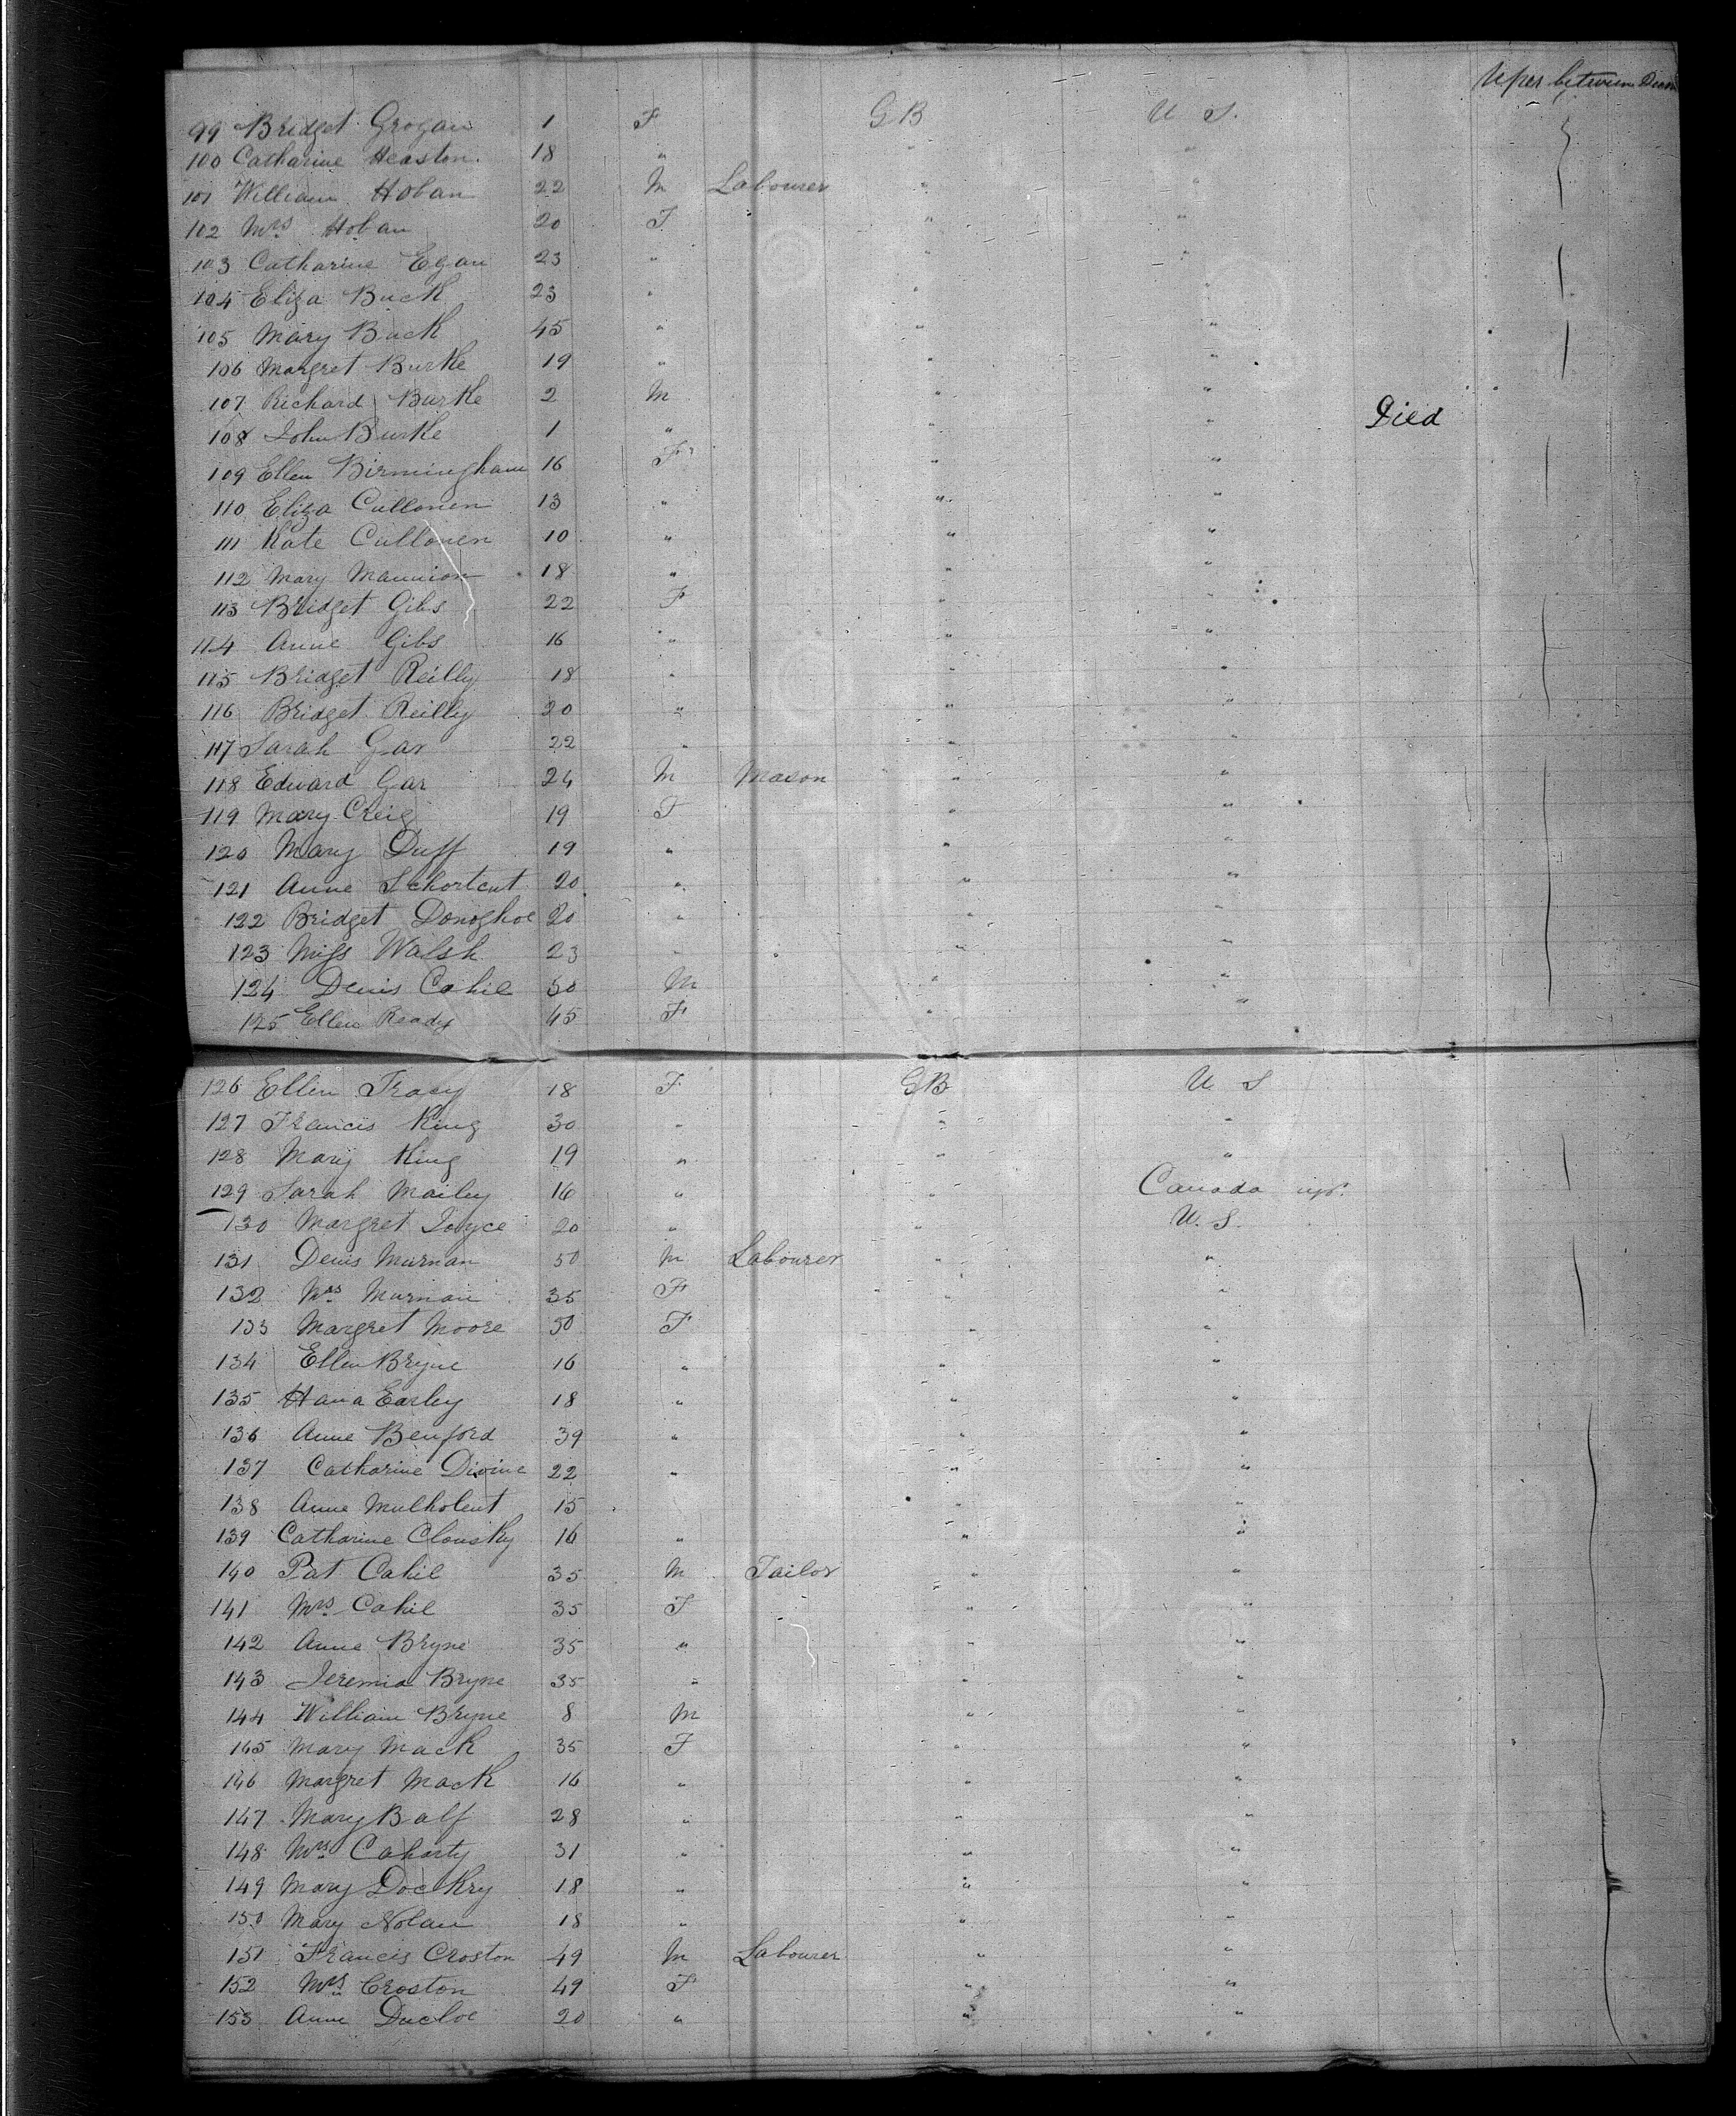 Uper between Deck
99 Bridget Grogan 1 F GB U S.
100 Catharine Heaston. 18 " " "
101 William Hoban 22 M Labourer " "
102 Mrs Hoban 20 F " "
103 Catharine Egan 23 " " "
104 Eliza Buck 23 " " "
105 Mary Buck 45 " " "
106 Margret Burke 19 " " "
107 Richard Burke 2 M " "
108 John Burke 1 " " " Died
109 Ellen Birmingham 16 F " "
110 Eliza Cullonen 13 " " "
111 Kate Cullonen 10 " " "
112 Mary Mannion 18 " " "
113 Bridget Gibs 22 F " "
114 Anne Gibs 16 " " "
115 Bridget Reilly 18 " " "
116 Bridget Reilly 20 " " "
117 Sarah Gar 22 " " "
118 Edward Gar 24 M Mason " "
119 Mary Creig 19 F " "
120 Mary Duff 19 " " "
121 Anne Schortcut 20 " " "
122 Bridget Donoghoe 20 " " "
123 Miss Walsh 23 " " "
124 Denis Cahil 50 M " "
125 Ellen Ready 45 F " "
126 Ellen Tracy 18 F GB U S
127 Francis King 30 " " "
128 Mary King 19 " " "
129 Sarah Mailey 16 " " Canada
130 Margret Joyce 20 " " U. S.
131 Denis Murnan 50 M Labourer " "
132 Mrs Murnan 35 F " "
133 Margret Moore 50 F " "
134 Ellen Bryne 16 " " "
135 Hana Earley 18 " " "
136 Anne Benford 39 " " "
137 Catharine Divine 22 " " "
138 Anne Mulholent 15 "
139 Catharine Clousky 16 " " "
140 Pat Cahil 35 M Tailor " "
141 Mrs Cahil 35 F " "
142 Anne Bryne 35 " " "
143 Jeremia Bryne 35 " " "
144 William Bryne 8 M " "
145 Mary Mack 35 F " "
146 Margret Mack 16 " " "
147 Mary Balf 28 " " "
148 Mrs Caharty 31 " " "
149 Mary Dockry 18 " " "
150 Mary Nolan 18 " " "
151 Francis Croston 49 M Labourer " "
152 Mrs Croston 49 F " "
153 Anne Ducloe 20 " " "